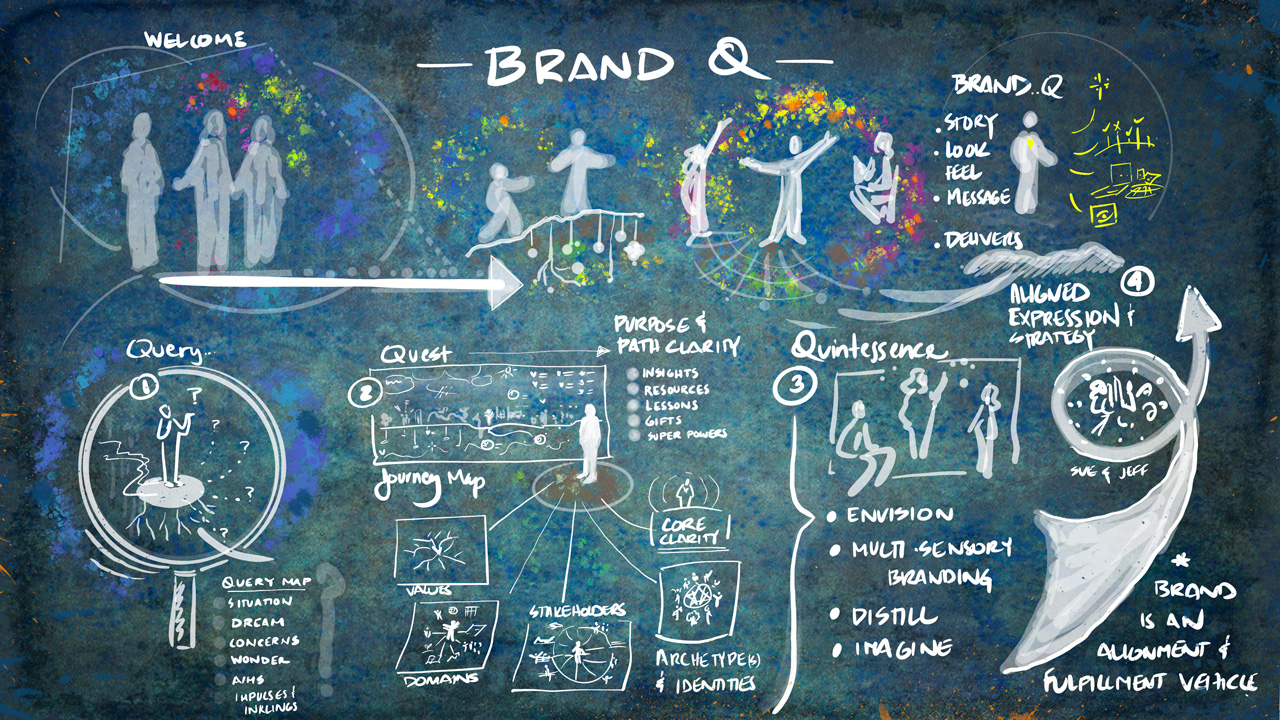 WELCOME
BRAND Q
BRAND..Q
• STORY
• LOOK
FEEL
• MESSAGE
• DELIVERS
Query...
1
?
?
?
?
?
QUERY MAP
SITUATION
DREAM
CONCERNS
WONDER
AIMS
IMPULSES &
INKLINGS
?
Quest
2
PURPOSE &
PATH CLARITY
INSIGHTS
RESOURCES
LESSONS
GIFTS
SUPER POWERS
Journey Map
VALUES
DOMAINS
STAKEHOLDERS
CORE
CLARITY
ARCHETYPE(S)
& IDENTITIES
Quintessence
3
• ENVISION
• MULTI-SENSORY
BRANDING
• DISTILL
• IMAGINE
4
ALIGNED
EXPRESSION &
STRATEGY
SUE & JEFF
* BRAND
IS AN
ALIGNMENT &
FULFILLMENT VEHICLE